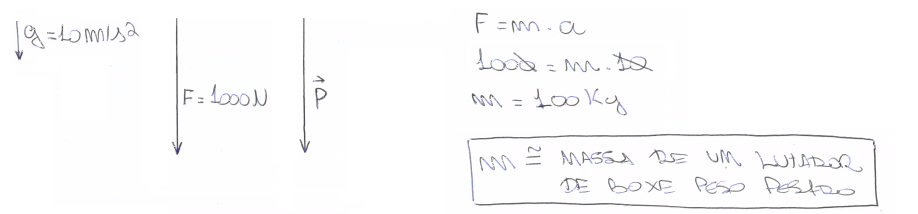 g = 10 m/s2
F = 1000N
P
F = m . a
1000 = m . 10
m = 100 Kg
m ≅ MASSA DE UM LUTADOR
DE BOXE PESO PESADO